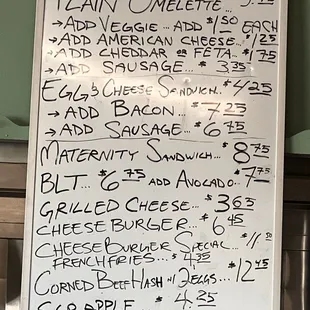 PLAIN OMELETTE..
→ADD VEGGIE... ADD $1.50 EACH
→ADD AMERICAN CHEESE..$1.25
→ADD CHEDDAR OR FETA..$1.75
→ADD SAUSAGE...$3.35
EGG & CHEESE SANDWICH..$4.25
→ADD BACON...$7.25
→ADD SAUSAGE...$6.75
MATERNITY SANDWICH...$8.75
BLT...$6.75 ADD AVOCADO..$7.75
GRILLED CHEESE...$3.65
CHEESE BURGER...$6.45
CHEESE BURGER SPECIAL...
FRENCH FRIES...$4.35
CORNED BEEF HASH W/ 2 EGGS...$12.45
APPLE $4.25